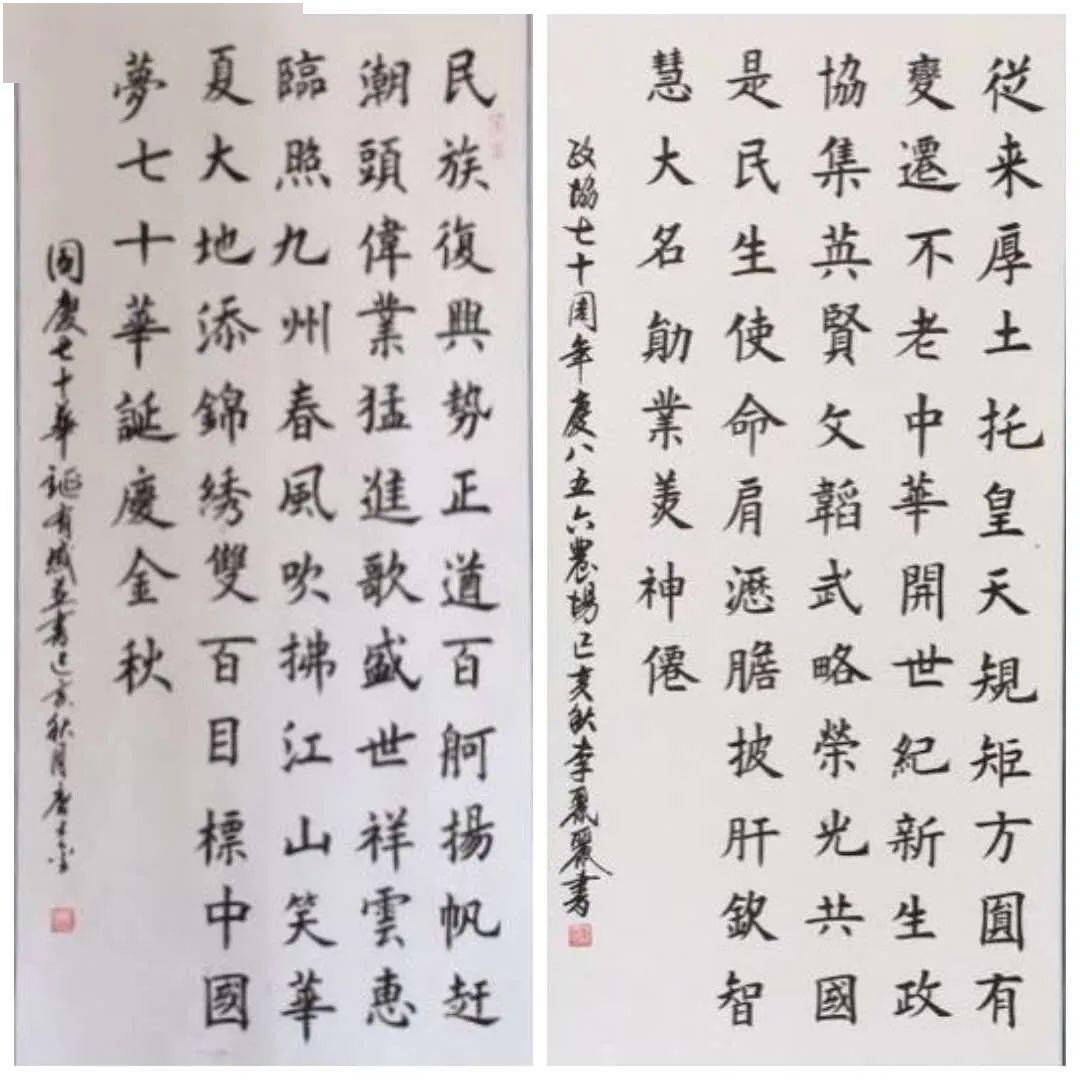 從来厚土托皇天規矩方圓有
變遷不老中華開世紀新生政
協集英賢文韜武略榮光共國
是民生使命肩瀝膽披肝欽智
慧大名勛業羨神僊
政協七十周年慶八五六農場己亥秋李麗書
民族復興勢正道百舸揚帆赶
潮頭偉業猛進歌盛世祥雲惠
臨照九州春風吹拂江山笑華
夏大地添錦綉雙百目標中國
夢七十華誕慶金秋
國慶七十華誕有感並書己亥秋月